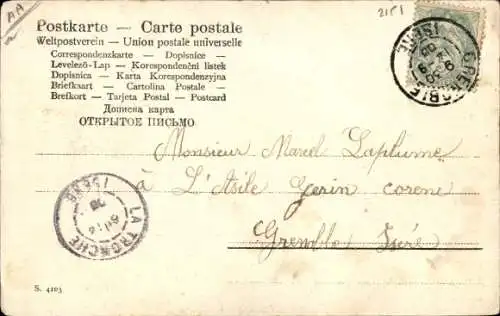 AA
2151
Postkarte — Carte postale
Weltpostverein — Union postale universelle
Correspondenzkarte — Dopisnice —
Levelező-Lap — Korespondenční lístek
Dopisnica — Karta Korespondenzyjna
Briefkaart — Cartolina Postale —
Brefkort — Tarjeta Postal — Postcard
Дописна карта
ОТКРЫТОЕ ПИСЬМО
ISÈRE
Monsieur Marcel Laplume
à L'Asile Gerin corenc
Grenoble Isère
LA TRONCHE
ISÈRE
S. 4103